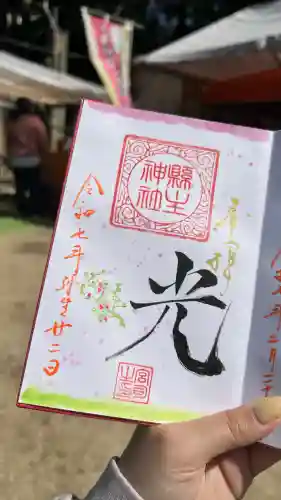 奉拝
縣主
神社
光
令和七年弥生廿二日
宮司
之印